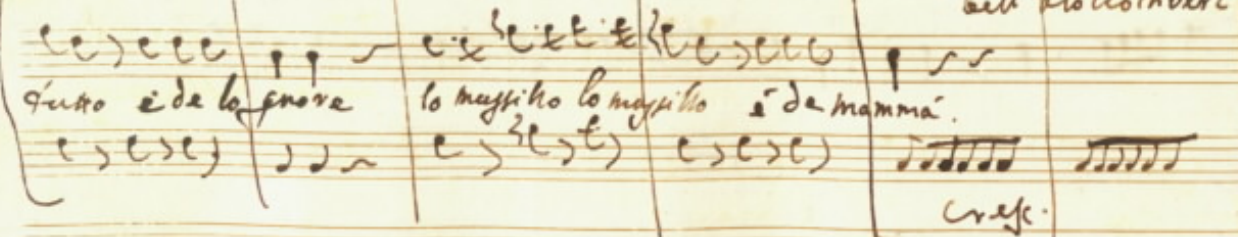 tutto è de lo gnore lo mussillo lo mussillo è de mammá.
cresc.